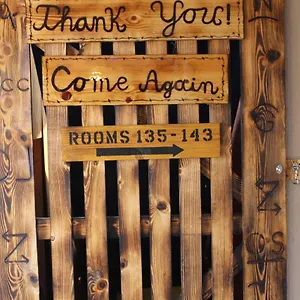 Thank You!
Come Again
ROOMS 135-143